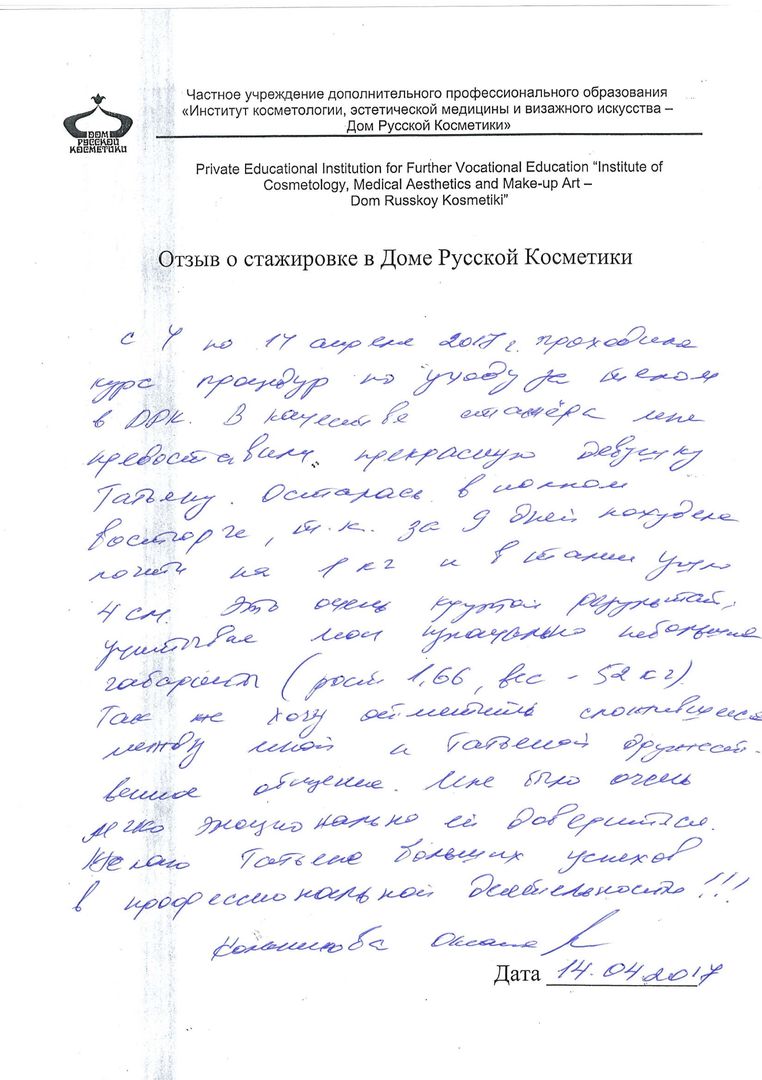 ДОМ
РУССКОЙ
КОСМЕТИКИ
Частное учреждение дополнительного профессионального образования
«Институт косметологии, эстетической медицины и визажного искусства –
Дом Русской Косметики»
Private Educational Institution for Further Vocational Education “Institute of
Cosmetology, Medical Aesthetics and Make-up Art –
Dom Russkoy Kosmetiki”
Отзыв о стажировке в Доме Русской Косметики
с 4 по 14 апреля 2017 г. проходила
курс процедур по уходу за телом
в ДРК. В качестве стажёра мне
предоставили прекрасную девушку
Татьяну. Осталась в полном
восторге, т.к. за 9 дней похудела
почти на 1 кг и в талии ушло
4 см. Это очень крутой результат,
учитывая мои изначально небольшие
габариты (рост 1,66, вес - 52 кг).
Так же хочу отметить сложившееся
между мной и Татьяной дружест-
венное общение. Мне было очень
легко эмоционально ей довериться.
Желаю Татьяне больших успехов
в профессиональной деятельности!!!
Оксана
Дата 14.04.2017